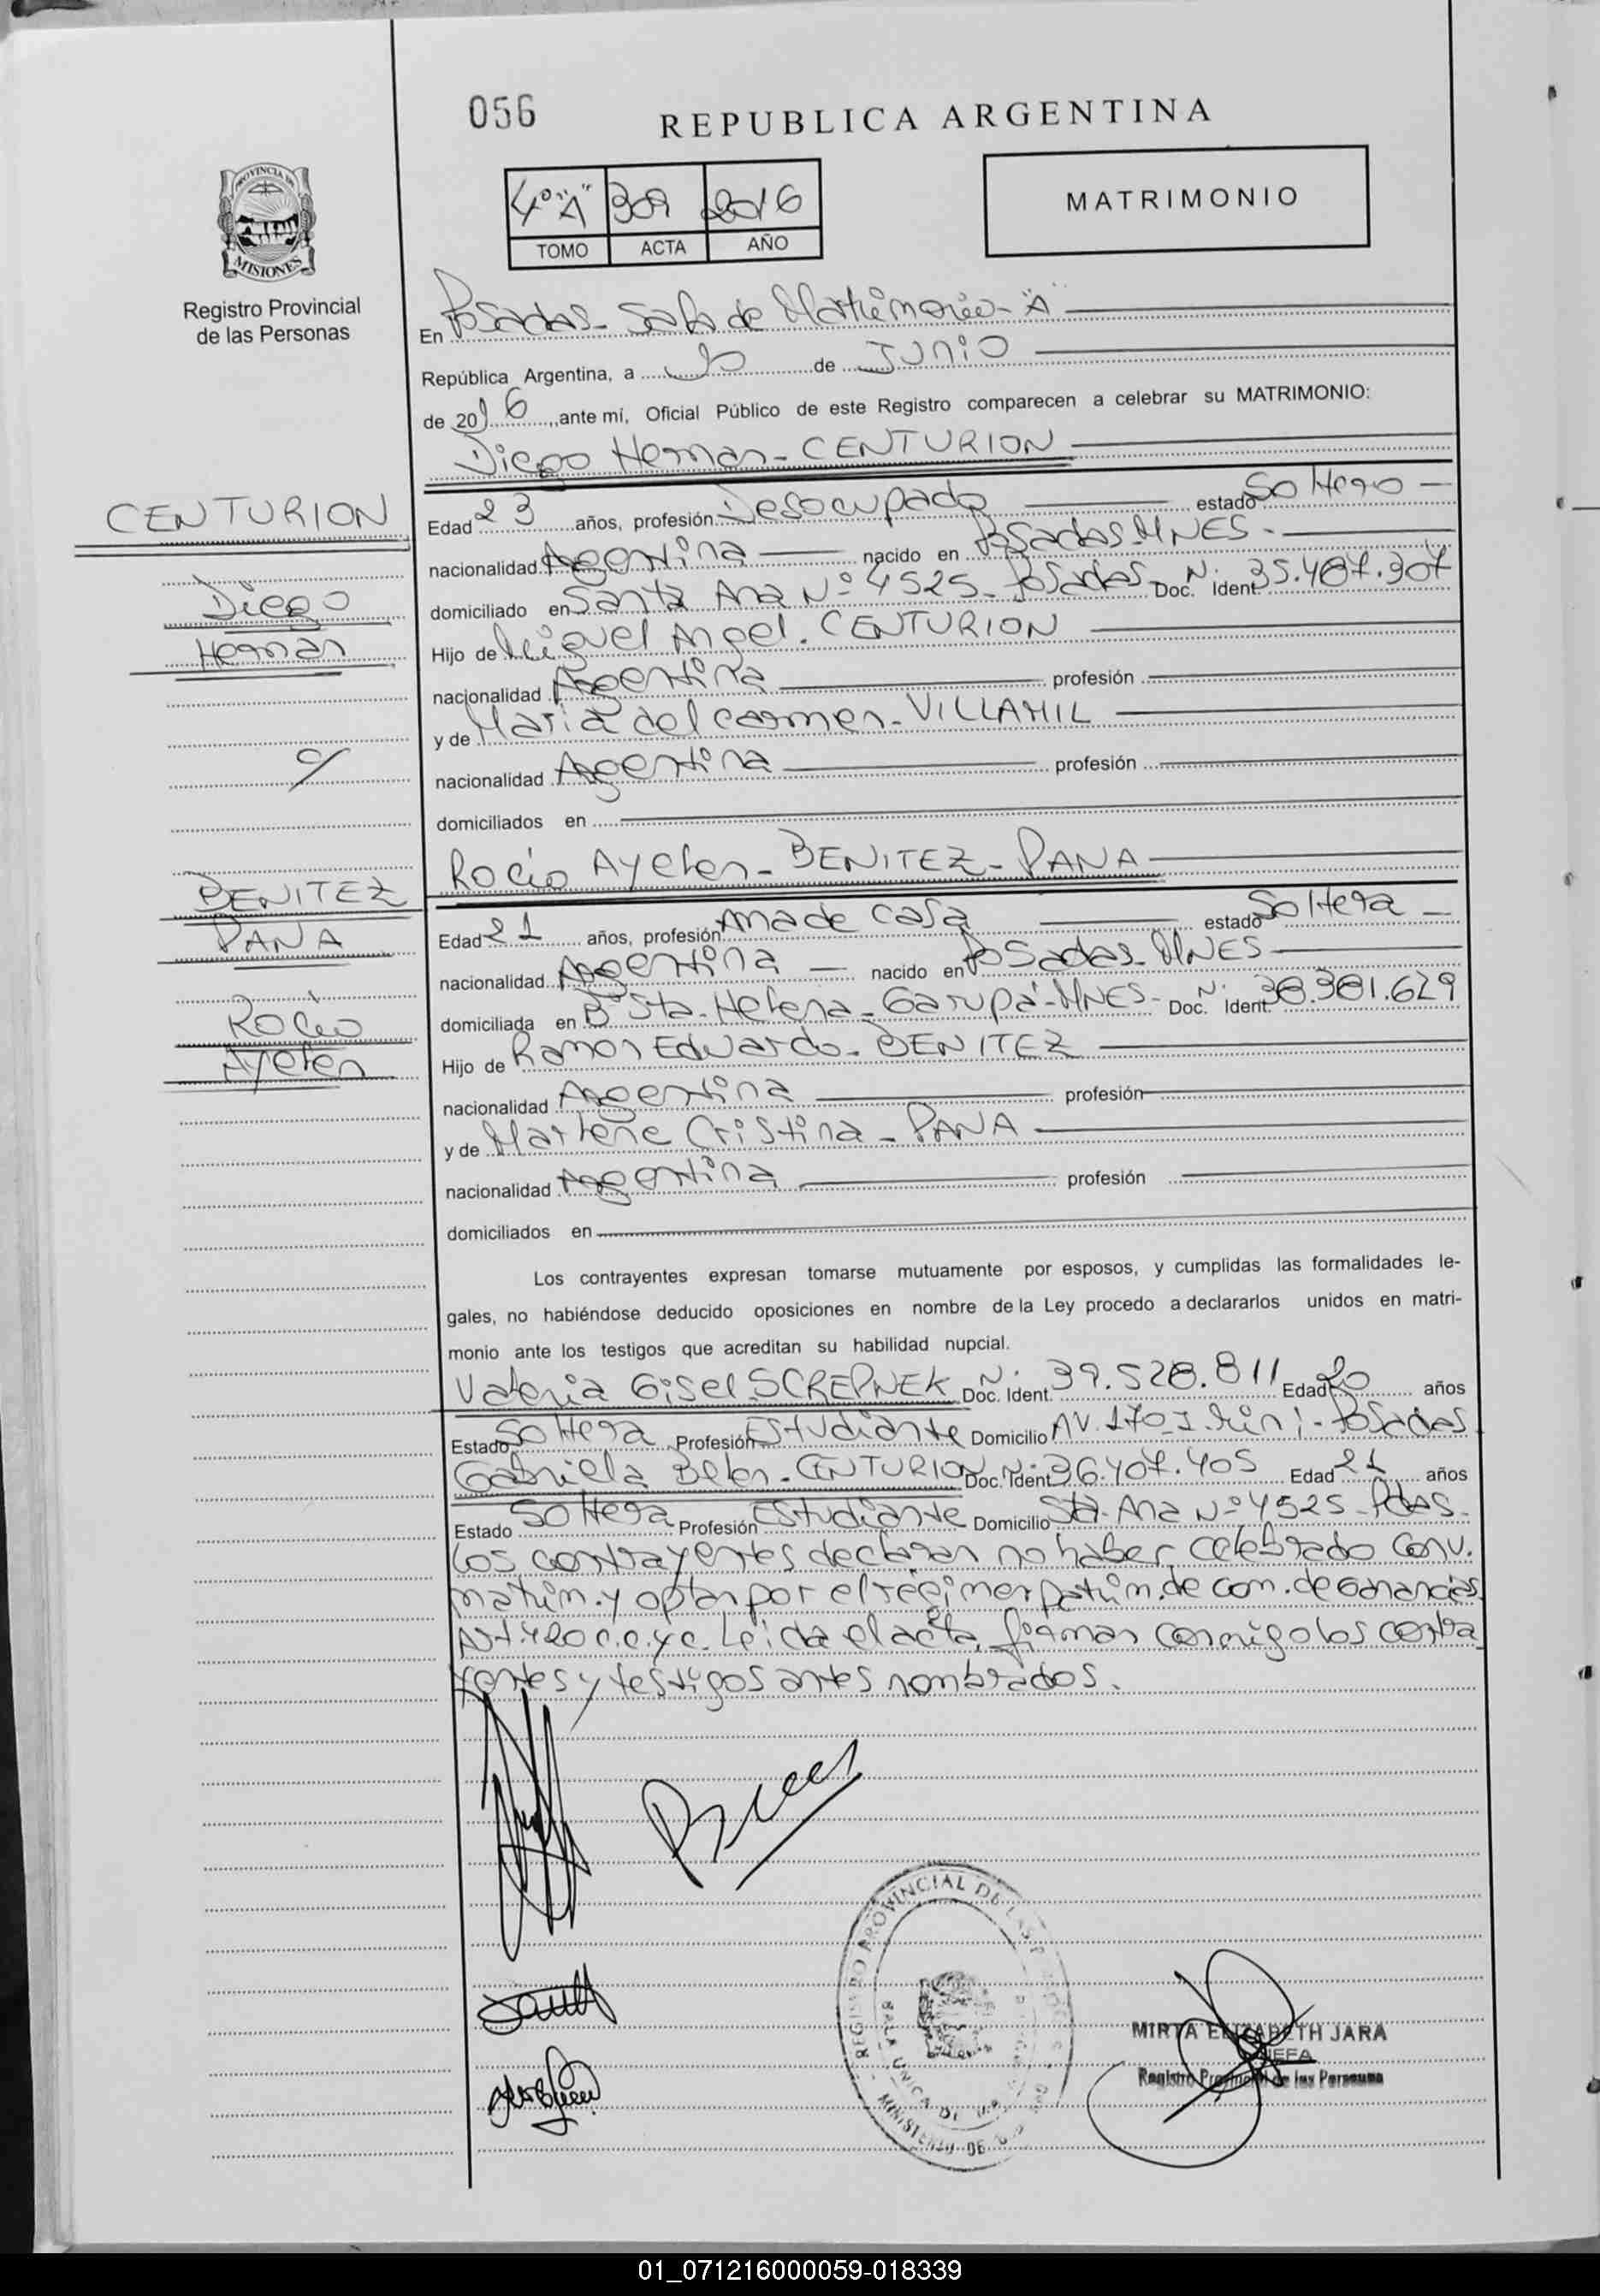 056
REPUBLICA ARGENTINA
4º "A" 309 2016
TOMO ACTA AÑO
MATRIMONIO
PROVINCIA DE
MISIONES
Registro Provincial
de las Personas
En Posadas - Sala de Matrimonio - "A"
República Argentina, a de JUNIO
de 2016 ante mí, Oficial Público de este Registro comparecen a celebrar su MATRIMONIO:
Diego Hernan - CENTURION
CENTURION
Diego
Hernan
Edad 23 años, profesión Desocupado estado Soltero
nacionalidad Argentina nacido en Posadas - MNES -
domiciliado en Santa Ana Nº 4525 - Posadas - Doc. N. Ident 35.487.307
Hijo de Miguel Angel - CENTURION
nacionalidad Argentina profesión
y de Maria del Carmen - VILLAMIL
nacionalidad Argentina profesión
domiciliados en
Rocio Ayelen - BENITEZ - PANA
BENITEZ
PANA
Rocio
Ayelen
Edad 21 años, profesión Ama de casa estado Soltera
nacionalidad Argentina nacido en Posadas - MNES
domiciliada en Bº Sta. Helena - Garupá - MNES - Doc. N. Ident 38.381.629
Hijo de Ramon Eduardo - BENITEZ
nacionalidad Argentina profesión
y de Marlene Cristina - PANA
nacionalidad Argentina profesión
domiciliados en
Los contrayentes expresan tomarse mutuamente por esposos, y cumplidas las formalidades le-
gales, no habiéndose deducido oposiciones en nombre de la Ley procedo a declararlos unidos en matri-
monio ante los testigos que acreditan su habilidad nupcial.
Valeria Gisel SCREPNEK Doc. N. Ident. 39.528.811 Edad 20 años
Estado Soltera Profesión Estudiante Domicilio AV. 170 - Posadas
Gabriela Belen - CENTURION Doc. N. Ident 36.407.405 Edad 21 años
Estado Soltera Profesión Estudiante Domicilio Sta. Ana Nº 4525 - Pdas.
Los contrayentes declaran no haber celebrado Conv.
matrim. y optan por el régimen patrim. de com. de Ganancias
Art. 420 C.C. y C. Leida el acta, firman conmigo los contra
yentes y testigos antes nombrados.
REGISTRO PROVINCIAL DE LAS
MINISTERIO DE
MIRTA ELIZABETH JARA
JEFA
Registro Provincial de las Personas
01_071216000059-018339